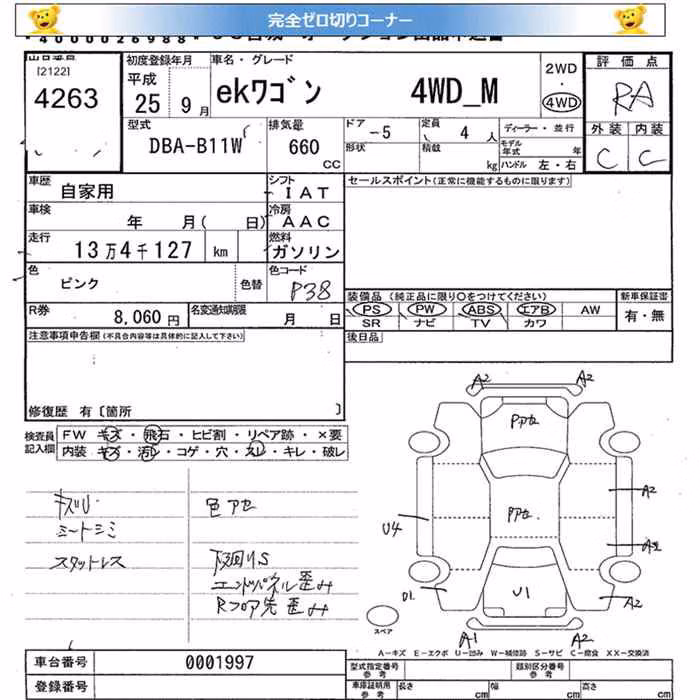 完全ゼロ切りコーナー
出品番号
[2122]
4263
初度登録年月
平成
25 9月
車名・グレード
ekワゴン 4WD_M
2WD
・
4WD
評価点
RA
外装 内装
C C
型式
DBA-B11W
排気量
660
CC
ドア
-5
定員
4 人
形状
積載
kg
ディーラー・並行
モデル年式 年
ハンドル 左・右
車歴
自家用
シフト
IAT
車検
年 月( 日)
冷房
AAC
走行
13万4千127 km
燃料
ガソリン
色
ピンク
色替
色コード
P38
R券
8,060 円
名変通知期限
月 日
セールスポイント(正常に機能するものに限ります)
装備品 (純正品に限り○をつけてください)
PS PW ABS エアB AW
SR ナビ TV カワ
新車保証書
有・無
後日品
注意事項申告欄(不具合内容等は具体的に記入して下さい)
修復歴 有〔箇所 〕
検査員記入欄
FW キズ・飛石・ヒビ割・リペア跡・×要
内装 キズ・汚レ・コゲ・穴・スレ・キレ・破レ
キズU
シートシミ
スタットレス
色アセ
下廻りS
エンドパネル歪み
Rフロア先歪み
A2 A2
Pアセ
Pアセ.
U4
A2
A2
U1
U1
A2
A1 A2
スペア
A-キズ E-エクボ U-凹み W-補修跡 S-サビ C-腐食 XX-交換済
車台番号 0001997
登録番号
型式指定番号
参考
類別区分番号
参考
車庫証明用
参考
長さ cm 幅 cm 高さ cm